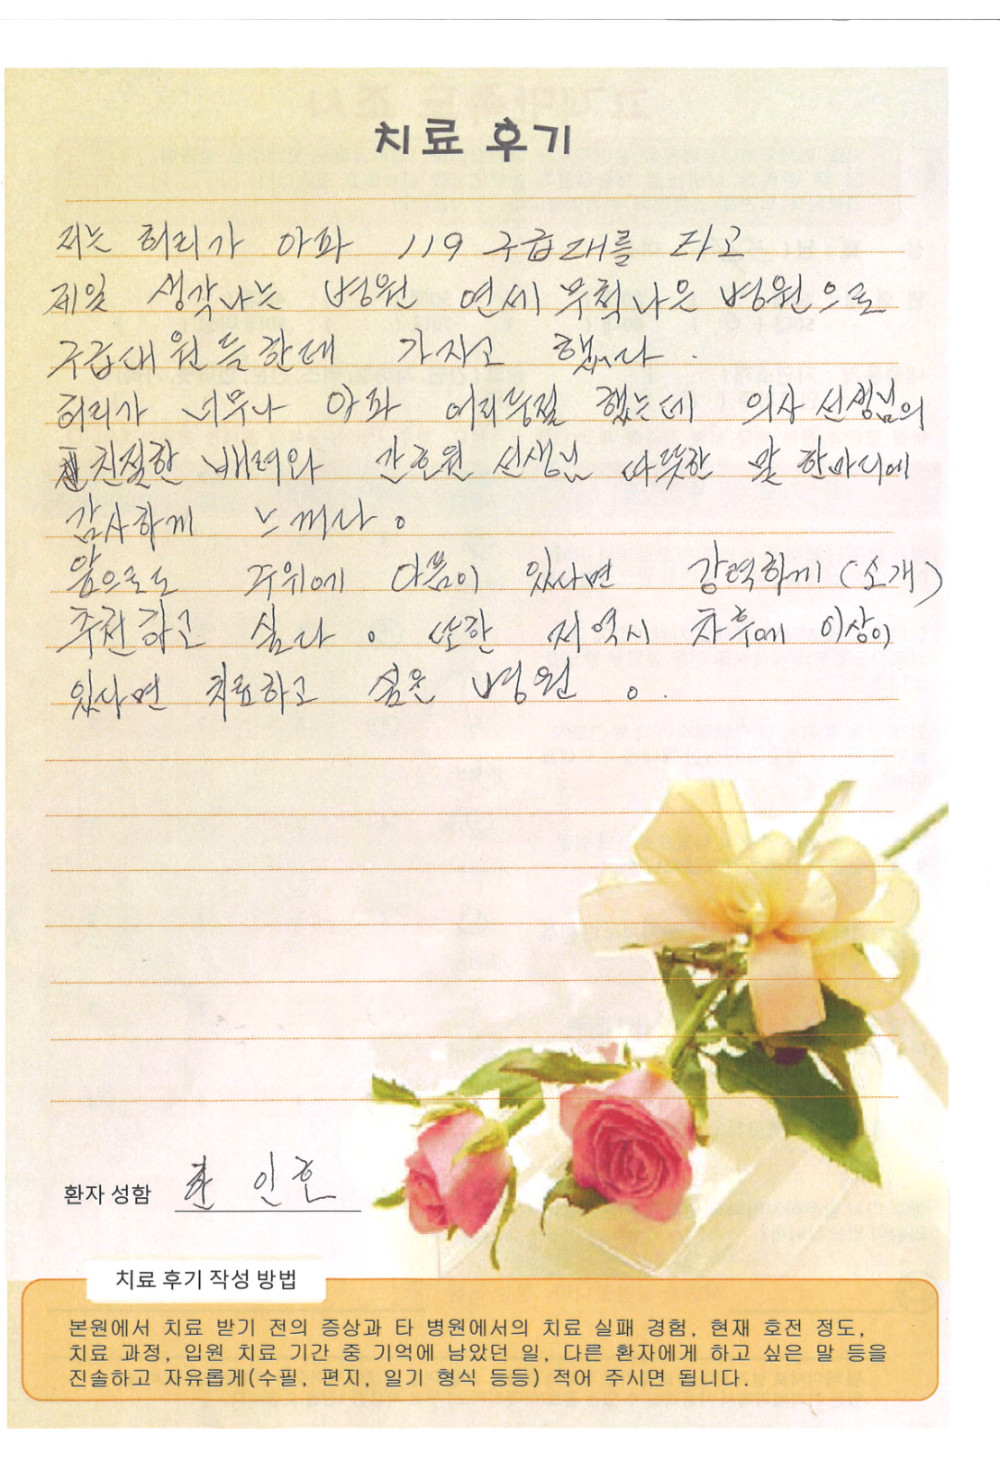 치료 후기
저는 허리가 아파 119 구급대를 타고
제일 생각나는 병원 연세 무척나은 병원으로
구급대원들한데 가자고 했다.
허리가 너무나 아파 어리둥절 했는데 의사 선생님의
친절한 배려와 간호원 선생님 따뜻한 말 한마디에
감사하게 느끼다.
앞으로도 주위에 아픔이 있다면 강력하게 (소개)
추천하고 싶다. 또한 저 역시 차후에 이상이
있다면 치료하고 싶은 병원.
환자 성함 인호
치료 후기 작성 방법
본원에서 치료 받기 전의 증상과 타 병원에서의 치료 실패 경험, 현재 호전 정도,
치료 과정, 입원 치료 기간 중 기억에 남았던 일, 다른 환자에게 하고 싶은 말 등을
진솔하고 자유롭게(수필, 편지, 일기 형식 등등) 적어 주시면 됩니다.